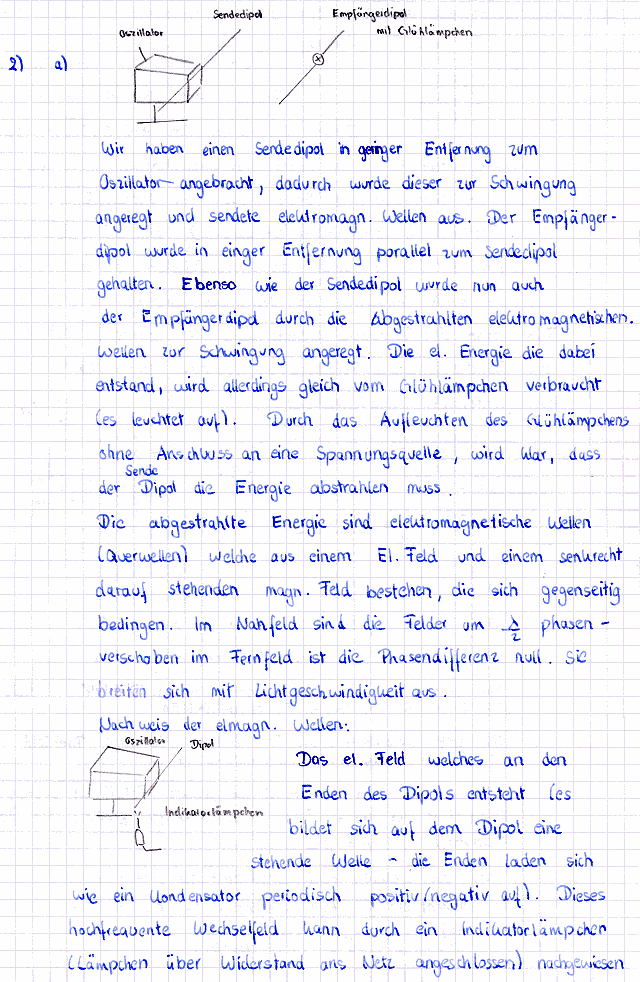 Sendedipol
Empfängerdipol
Oszillator
mit Glühlämpchen
2) a)
Wir haben einen Sendedipol in geringer Entfernung zum
Oszillator angebracht, dadurch wurde dieser zur Schwingung
angeregt und sendete elektromagn. Wellen aus. Der Empfänger-
dipol wurde in einger Entfernung parallel zum Sendedipol
gehalten. Ebenso wie der Sendedipol wurde nun auch
der Empfängerdipol durch die Abgestrahlten elektromagnetischen.
Wellen zur Schwingung angeregt. Die el. Energie die dabei
entstand, wird allerdings gleich vom Glühlämpchen verbraucht
(es leuchtet auf). Durch das Aufleuchten des Glühlämpchens
ohne Anschluss an eine Spannungsquelle, wird klar, dass
Sende
der Dipol die Energie abstrahlen muss.
Die abgestrahlte Energie sind elektromagnetische Wellen
(Querwellen) welche aus einem El. Feld und einem senkrecht
darauf stehenden magn. Feld bestehen, die sich gegenseitig
bedingen. Im Nahfeld sind die Felder um λ/2 phasen-
verschoben im Fernfeld ist die Phasendifferenz null. Sie
breiten sich mit Lichtgeschwindigkeit aus.
Nachweis der elmagn. Wellen:
Oszillator
Dipol
Das el. Feld welches an den
Enden des Dipols entsteht (es
Indikatorlämpchen
bildet sich auf dem Dipol eine
stehende Welle - die Enden laden sich
wie ein Kondensator periodisch positiv/negativ auf). Dieses
hochfrequente Wechselfeld kann durch ein Indikatorlämpchen
(Lämpchen über Widerstand ans Netz angeschlossen) nachgewiesen